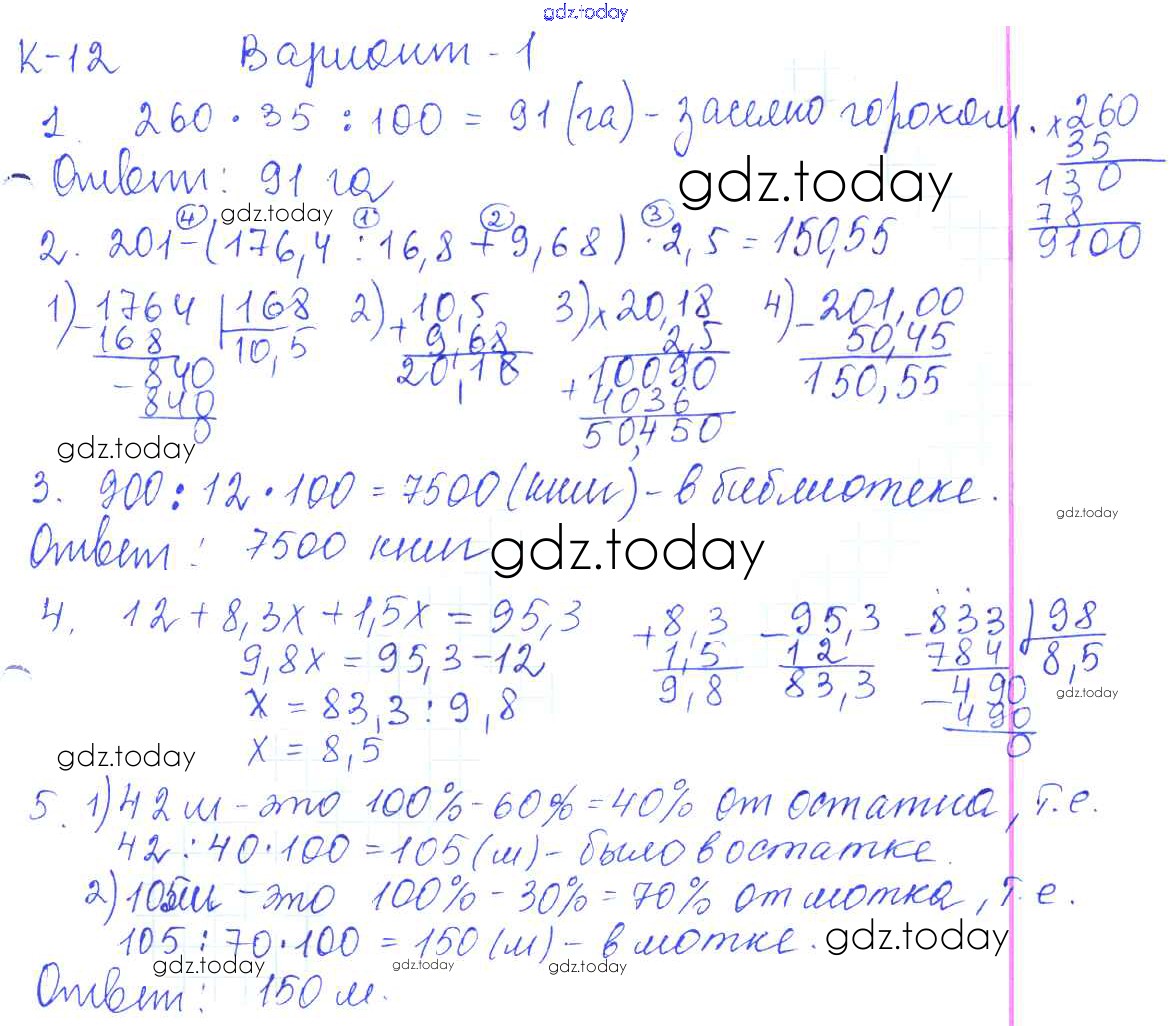 gdz.today
К-12 Вариант-1
1. 260 · 35 : 100 = 91 (га) - засеяно горохом.
× 260
35
130
78
9100
Ответ: 91 га
gdz.today
gdz.today
④ ① ② ③
2. 201-(176,4 : 16,8 + 9,68) · 2,5 = 150,55
1) - 1764 | 168
168 10,5
- 840
840
0
2) + 10,5
9,68
20,18
3) × 20,18
2,5
+ 10090
4036
50,450
4) - 201,00
50,45
150,55
gdz.today
3. 900 : 12 · 100 = 7500 (книг) - в библиотеке.
gdz.today
Ответ: 7500 книг
gdz.today
4. 12 + 8,3x + 1,5x = 95,3
9,8x = 95,3 - 12
x = 83,3 : 9,8
x = 8,5
+ 8,3
1,5
9,8
- 95,3
12
83,3
- 833 | 98
784 8,5
- 490
490
0
gdz.today
gdz.today
5. 1) 42 м - это 100% - 60% = 40% от остатка, т.е.
42 : 40 · 100 = 105 (м) - было в остатке.
2) 105м - это 100% - 30% = 70% от мотка, т.е.
105 : 70 · 100 = 150 (м) - в мотке.
gdz.today
gdz.today
gdz.today
gdz.today
Ответ: 150 м.